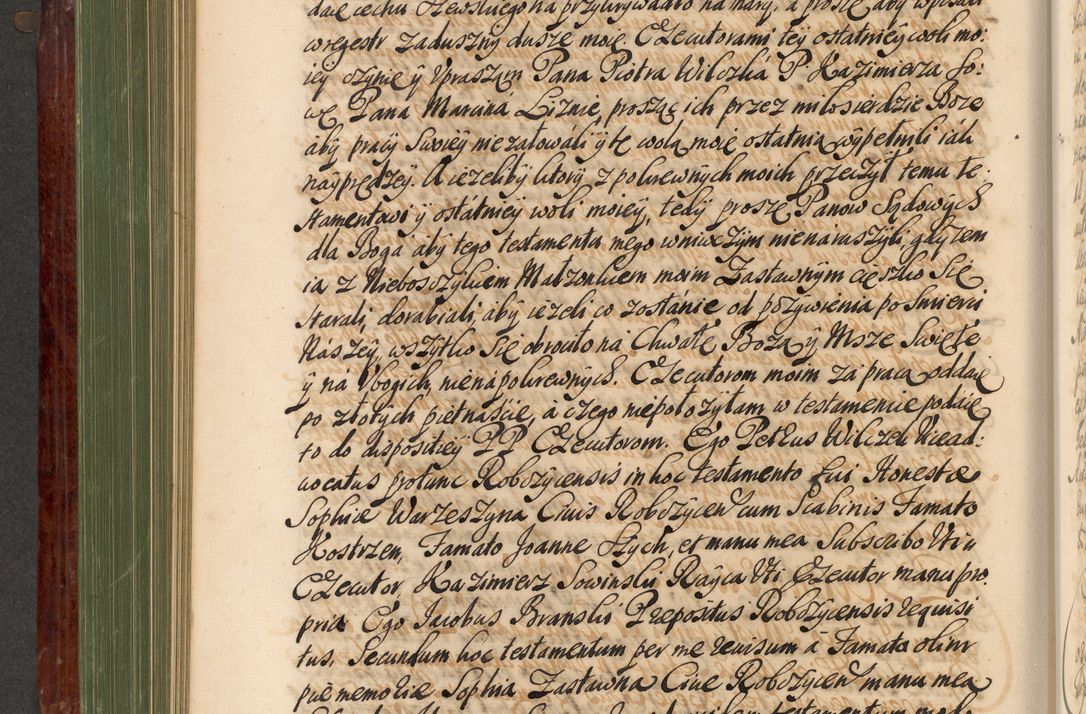 daię cechu Szewskiego na przykrywadło na mary, a proszę aby wpisali
w regestr zaduszny duszę moię. Exekutorami tey ostatniey woli mo:
iey czynię ÿ Vpraszam Pana Piotra Wilczka P. Kazimierza So:
wę Pana Marcina Liznię, prosząc ich przez miłosierdzie Boze
aby pracy Swoiey nie załowali ÿ tę wolą moię ostatnią wypełnili iák
nayprędzey. A iezeliby ktory z pokrewnych moich przeczył temu te
stamentowi ÿ ostatniey woli moiey, tedy proszę Panow Sądowych
dla Boga aby tego testamentu mego wniwczym nienáruszyli, gdyzem
ia z Nieboszczykiem Małzonkiem moim Zastawnym cięszko Się
starali, dorabiali, aby iezeli co zostánie od pozywienia po Smierci
Nászey, wszytko Się obrociło ná Chwałę Bozą ÿ Msze Swięte
ÿ ná Vbogich, nie ná pokrewnych. Exekutorom moim zá pracą oddaię
po złotych piętnaście, á czego niepołozyłam w testamencie podaię
to do dispositiey PP Exekutorom. Ego Petrus Wilczek Vicead:
uocatus protunc Robczycensis in hoc testamento fui Honestæ
Sophiæ Warzeszyna Ciuis Robczycen cum Scabinis Famato
Kostrzen, Famato Joanne Szych, et manu mea Subscribo Vti
Exekutor, Kazimierz Sowinski Rayca Vti Exekutor manu pro
pria Ego Jacobus Branski Præpositus Robczycensis requisi
tus, Secundum hoc testamentum per me reuisum á Famato olim
piæ memoriæ Sophia Zastawna Ciue Robczycen manu mea